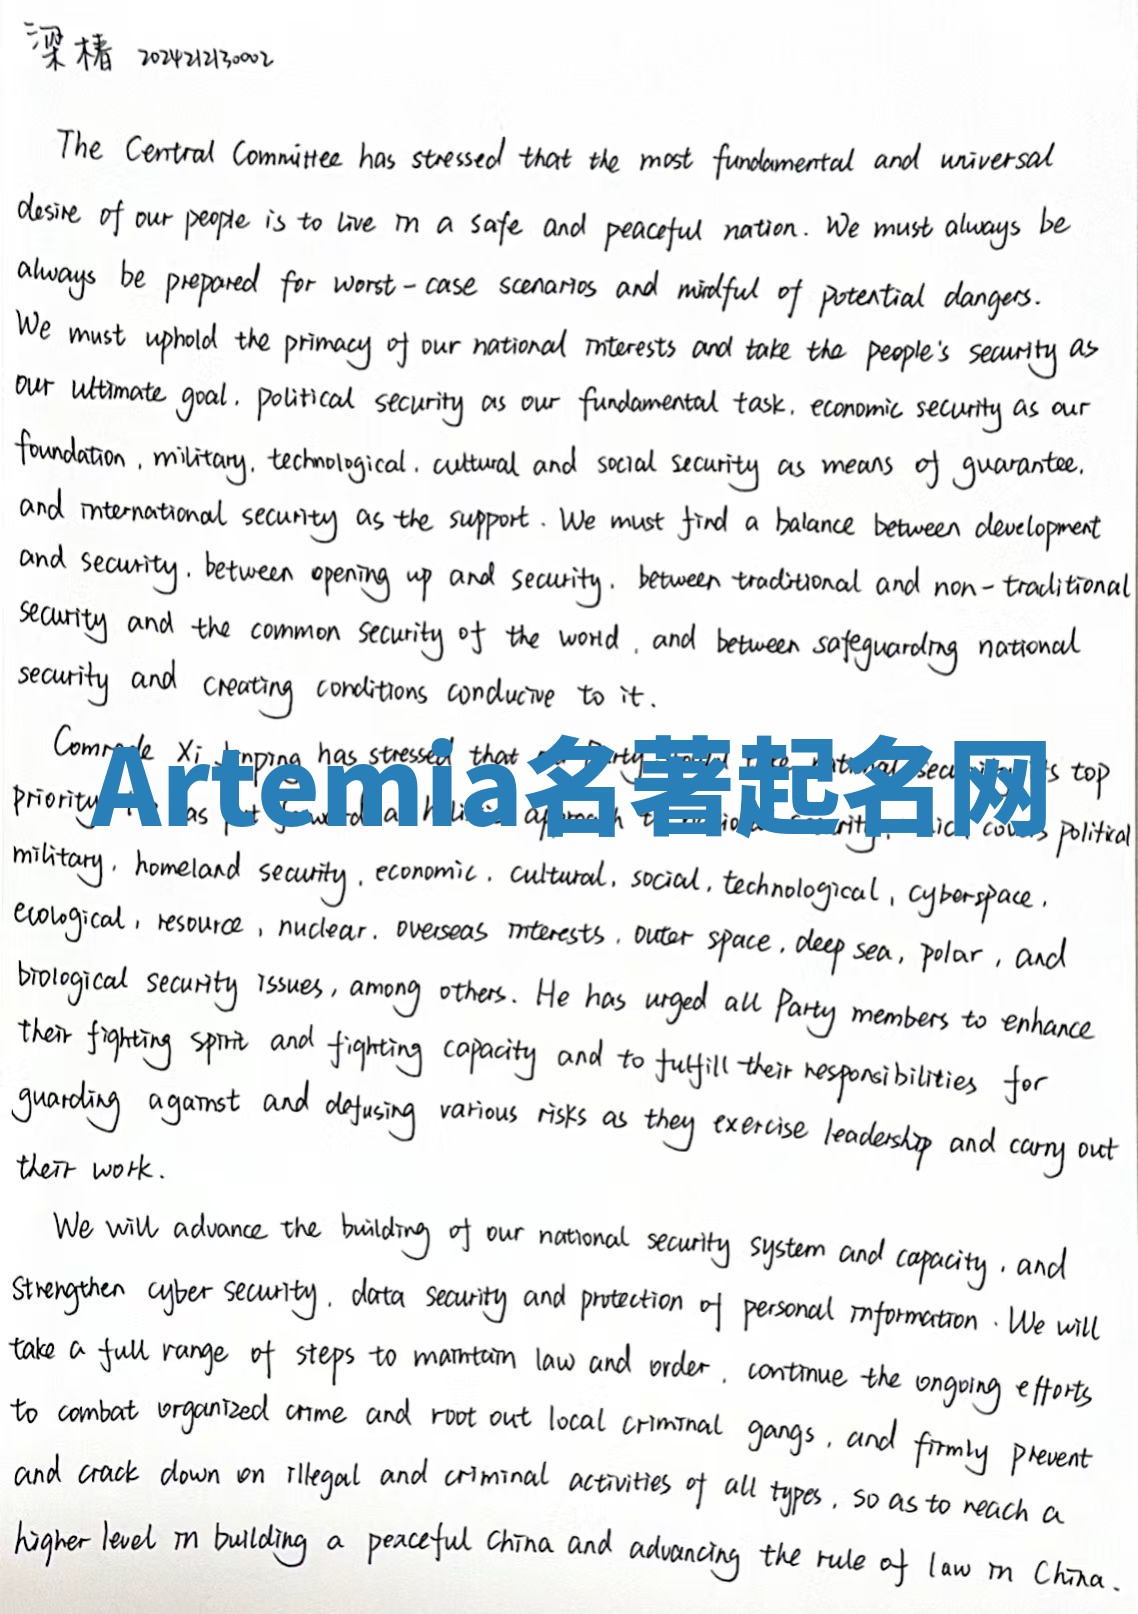 梁椿 2024212130002
The Central Committee has stressed that the most fundamental and universal
desire of our people is to live in a safe and peaceful nation. We must always be
always be prepared for worst-case scenarios and mindful of potential dangers.
We must uphold the primacy of our national interests and take the people's security as
our ultimate goal, political security as our fundamental task, economic security as our
foundation, military, technological, cultural and social security as means of guarantee,
and international security as the support. We must find a balance between development
and security, between opening up and security, between traditional and non-traditional
security and the common security of the world, and between safeguarding national
security and creating conditions conducive to it.
Comrade Xi Jinping has stressed that Party national security top
Artemia名著起名网
priority political
military, homeland security, economic, cultural, social, technological, cyberspace,
ecological, resource, nuclear, overseas interests, outer space, deep sea, polar, and
biological security issues, among others. He has urged all Party members to enhance
their fighting spirit and fighting capacity and to fulfill their responsibilities for
guarding against and defusing various risks as they exercise leadership and carry out
their work.
We will advance the building of our national security system and capacity, and
strengthen cyber security, data security and protection of personal information. We will
take a full range of steps to maintain law and order, continue the ongoing efforts
to combat organized crime and root out local criminal gangs, and firmly prevent
and crack down on illegal and criminal activities of all types, so as to reach a
higher level in building a peaceful China and advancing the rule of law in China.